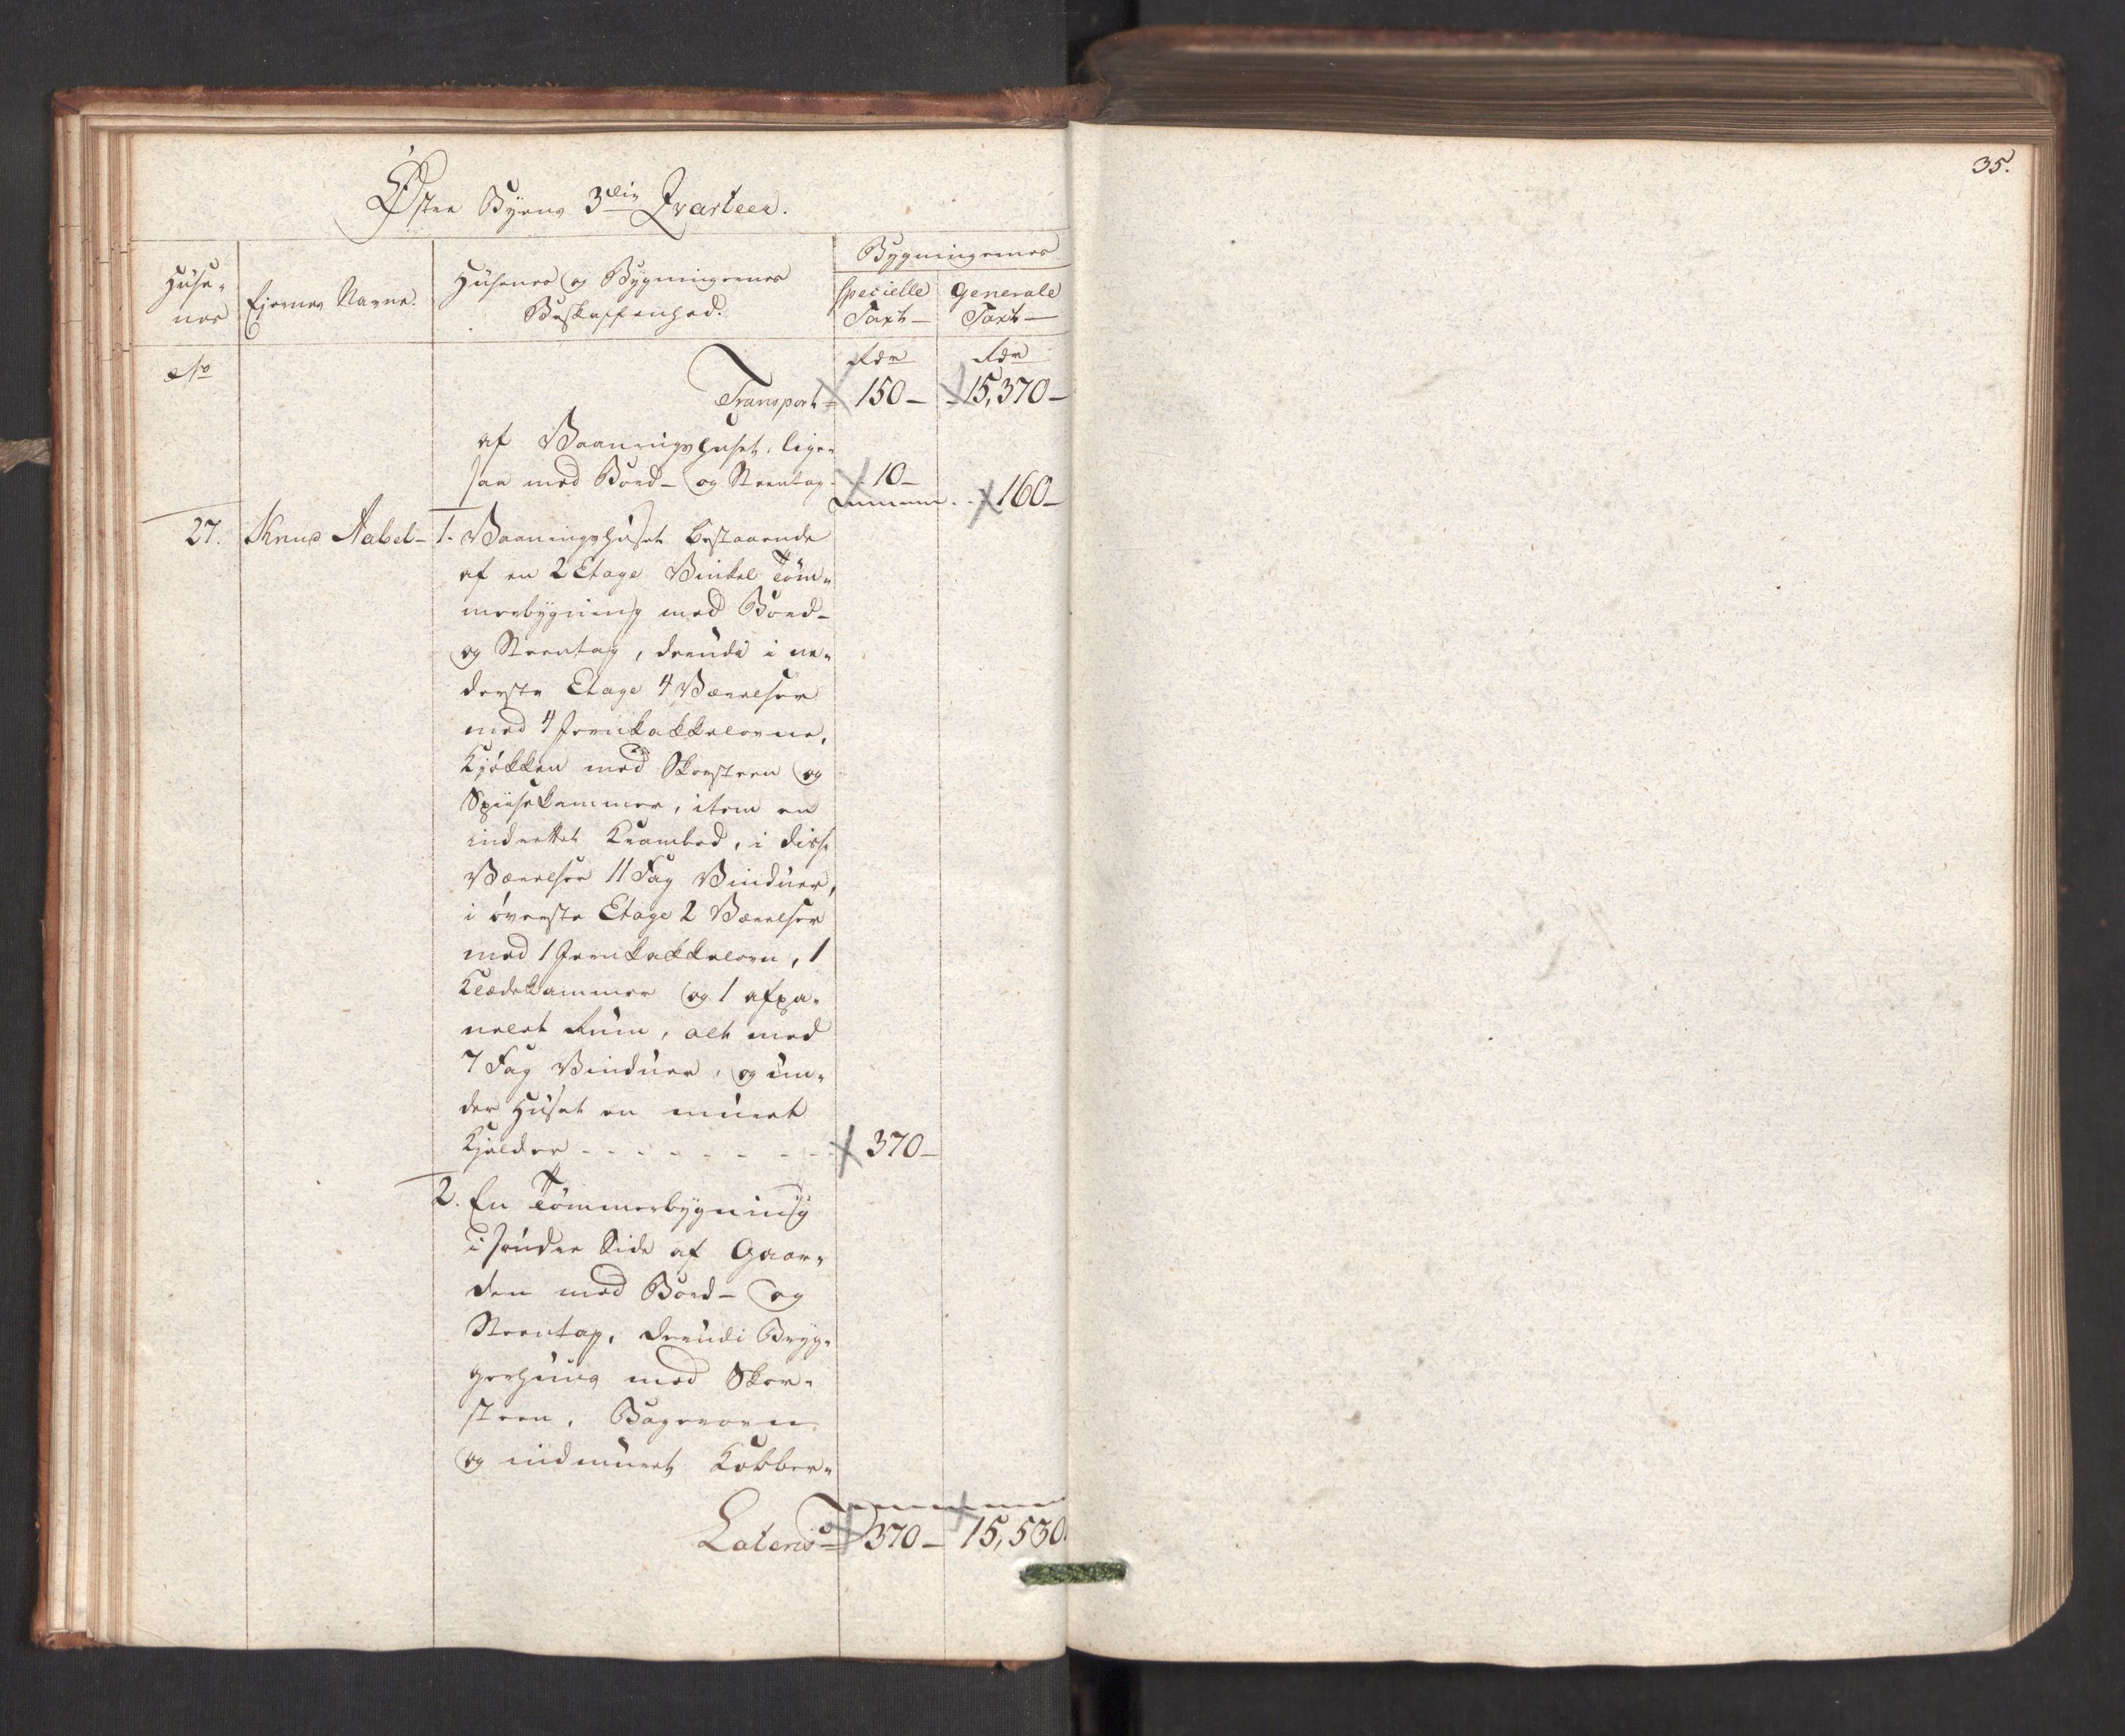 35.
Østre Byens 3die Qvarteer.
Huse-
nes
Eiernes Navne.
Husenes og Bygningernes
Beskaffenhed.
Bygningernes
Specielle
Taxt—
Generale
Taxt—
No
Rdr
Rdr
Transport= 150— 15,370—
af Vaaningshuset, lige-
saa med Bord- og Steentag— 10—
160—
27. Knud Aabel— 1. Vaaningshuset bestaaende
af en 2 Etage Vinkel Töm-
merbygning med Bord-
og Steentag, derudi i ne-
derste Etage 4 Værelser
med 4 Jernkakkelovne,
Kjökken med Skorsteen og
Spiisekammer, item en
indrettet Krambod, i disse
Værelser 11 Fag Vinduer,
i överste Etage 2 Værelser
med 1 Jernkakkelovn, 1
Klædekammer og 1 afpa-
nelet Rum, alt med
7 Fag Vinduer, og un-
der Huset en muret
Kjelder - - - - - - - 370—
2. En Tömmerbygning
i söndre Side af Gaar-
den med Bord- og
Steentag, derudi Bryg-
gerhuus med Skor-
steen, Bagerovn
og indmuret Kobber-
Lateris= 370— 15,530.